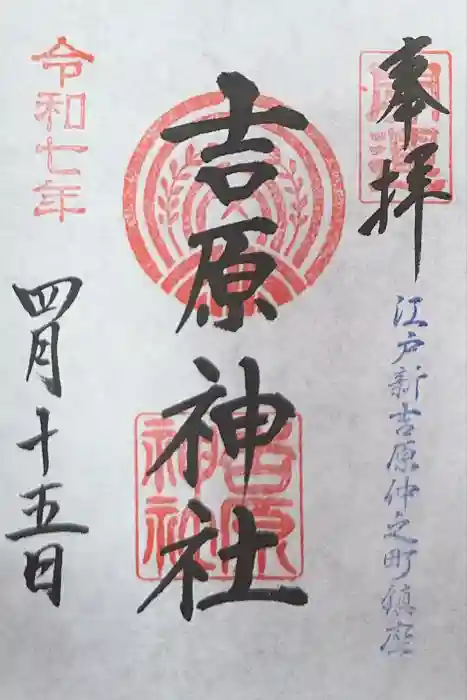 奉拝
開運
江戸新吉原仲之町鎮座
吉原神社
吉原神社
令和七年
四月十五日